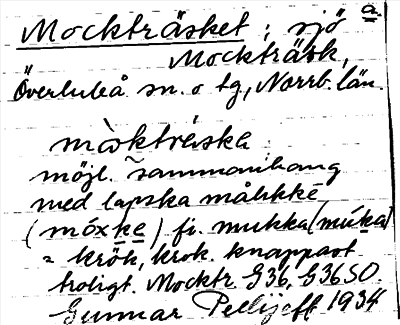 a.
Mockträsket; sjö
Mockträsk,
Överluleå sn. o tg, Norrb. län.
mòsktrǎska
möjl. sammanhang
med lapska måhkkē
(móχke) fi. mukka (múka)
= krök, krok. knappast
troligt. Mocktr G36, G36SO.
Gunnar Pellijeff 1934